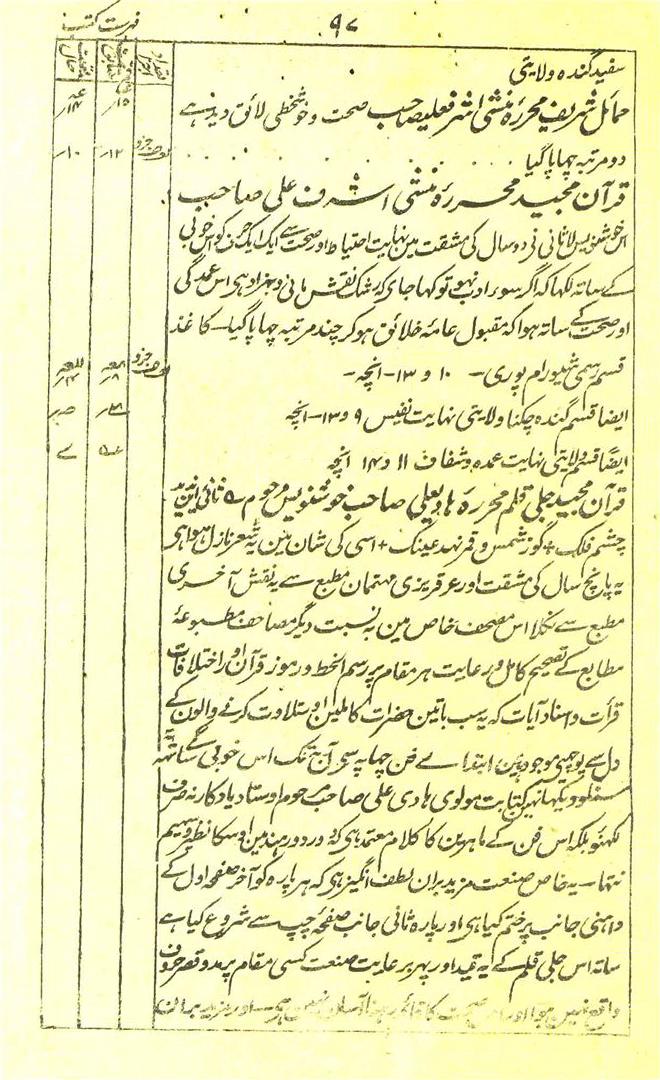 فہرست کتب
۹۷
تعداد اجزا
قیمت سابق
قیمت حال
سفید گندہ ولایتی
حمائل شریف محررہ منشی اشرفعلیصاحب صحت و خوشخطی لائق دید ہے
۱۵؍
دو مرتبہ چھاپا گیا
جزو
۱۲؍
۱۰؍
قرآن مجید محررہ منشی اشرف علی صاحب
اس خوشنویس لاثانی نی دو سال کی مشقت مین نہایت احتیاط اور صحت سے ایک ایک حرف کو اس خوبی
کے ساتہ لکھا کہ اگر سوء ادب نہو تو کہا جای کہ رشک نقش مانی و بہزاد ہی اس عمدگی
اور صحت کے ساتہ ہوا کہ مقبول عامۂ خلائق ہو کر چند مرتبہ چھاپا گیا۔ کاغذ
قسم رسمی شیورام پوری۔ ۱۰ و ۱۳۔ انچہ۔
جزو
ایضا قسم گندہ چکنا ولایتی نہایت نفیس ۹ و ۱۳۔ انچہ
ایضًا قسم ولایتی نہایت عمدہ و شفاف ۱۱ و ۱۴ انچہ
قرآن مجید جلی قلم محررہ ہادیعلی صاحب خوشنویس مرحوم ے ثانی این ندید
چشم فلک + گو ز شمس و قمر نہد عینک + اسی کی شان مین یہ شعر نازل ہوا ہی
یہ پانچ سال کی مشقت اور عرقریزی مہتممان مطبع سے یہ نقش آخری
مطبع سے نکلا اس مصحف خاص مین بہ نسبت دیگر مصاحف مطبوعۂ
مطابع کے تصحیح کامل و رعایت ہر مقام پر رسم الخط و رموز قرآن اور اختلافات
قرأت و اسناد آیات کہ یہ سب باتین حضرات کاملین اور تلاوت کرنے والون کے
دل سے پوچھیی موجود ہین ابتداے فن چھاپہ سی آج تک اس خوبی کے ساتھہ
سنا اور دیکھا نہین کتابت مولوی ہادی علی صاحب مرحوم اوستاد یادگار نہ صرف
لکھنؤ بلکہ اس فن کے ماہرین کا کلام معتمد ہی کہ دور دور ہند مین اوسکا نظیر و سہیم
نتھا۔ یہ خاص صنعت مزید بران لطف انگیز ہی کہ ہر پارہ کو آخر صفحہ اول کے
داہنی جانب پر ختم کیا ہی اور پارہ ثانی جانب صفحہ چپ سے شروع کیا ہے
ساتہ اس جلی قلم کے یہ قید اور پہر برعایت صنعت کسی مقام پر مد و قصر حروف
واقع نہین ہوا اور صحت کا قائم رہنا آسان نہین ہی۔ اور مزید بران